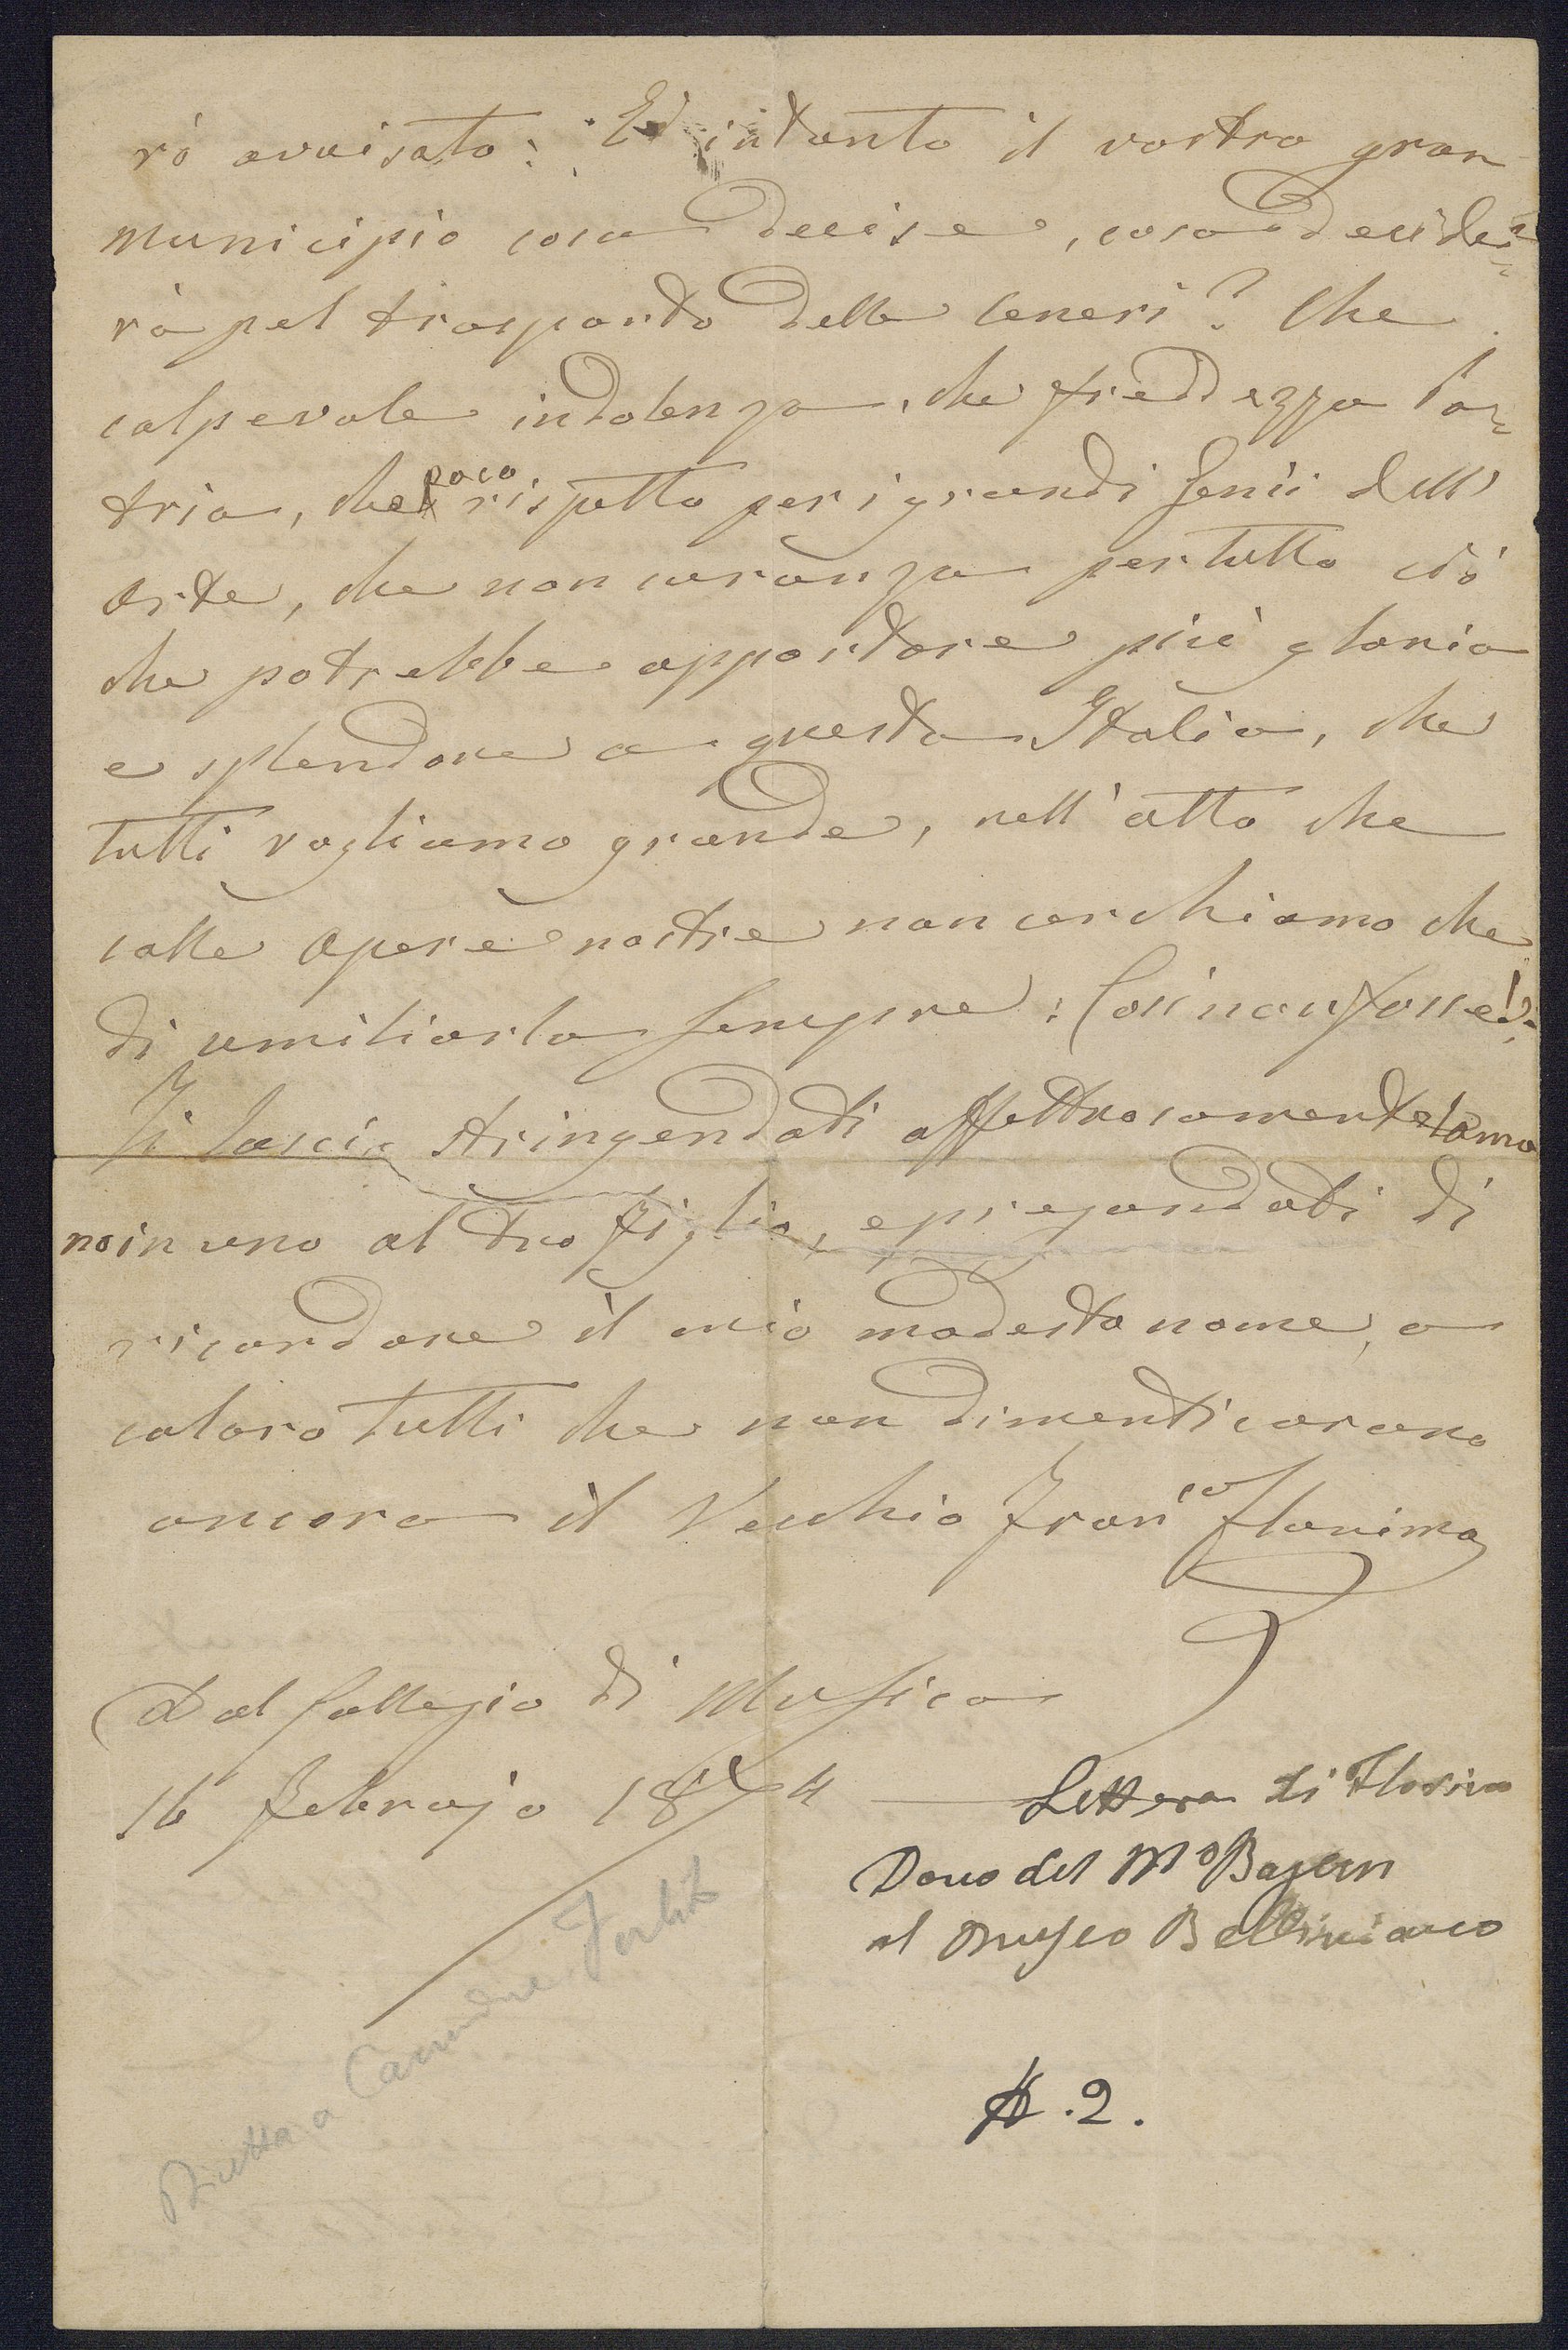 rò avvisato: Ed intanto il vostro gran
municipio cosa decise, cosa decide=
rà pel trasporto delle Ceneri? Che
colpevole indolenza, che freddezza Pa=
tria, che poco rispetto per i grandi Genii dell'
Arte, che non curanza per tutto ciò
che potrebbe apportare più gloria
e splendore a questa Italia, che
tutti vogliamo grande, nell'atto che
colle Opere nostre non cerchiamo che
di umiliarla sempre: Così non fosse!
Ti lascio stringendoti affettuosamente la ma
no in uno al tuo figlio, e pregandoti di
ricordare il mio modesto nome, a
coloro tutti che non dimenticarono
ancora il Vecchio Franco Florimo
Dal Collegio di Musica
16 Febrajo 1874
Lettera di Florimo
Dono del Mo
al Museo Belliniano
Diretta a Carmelo
2.